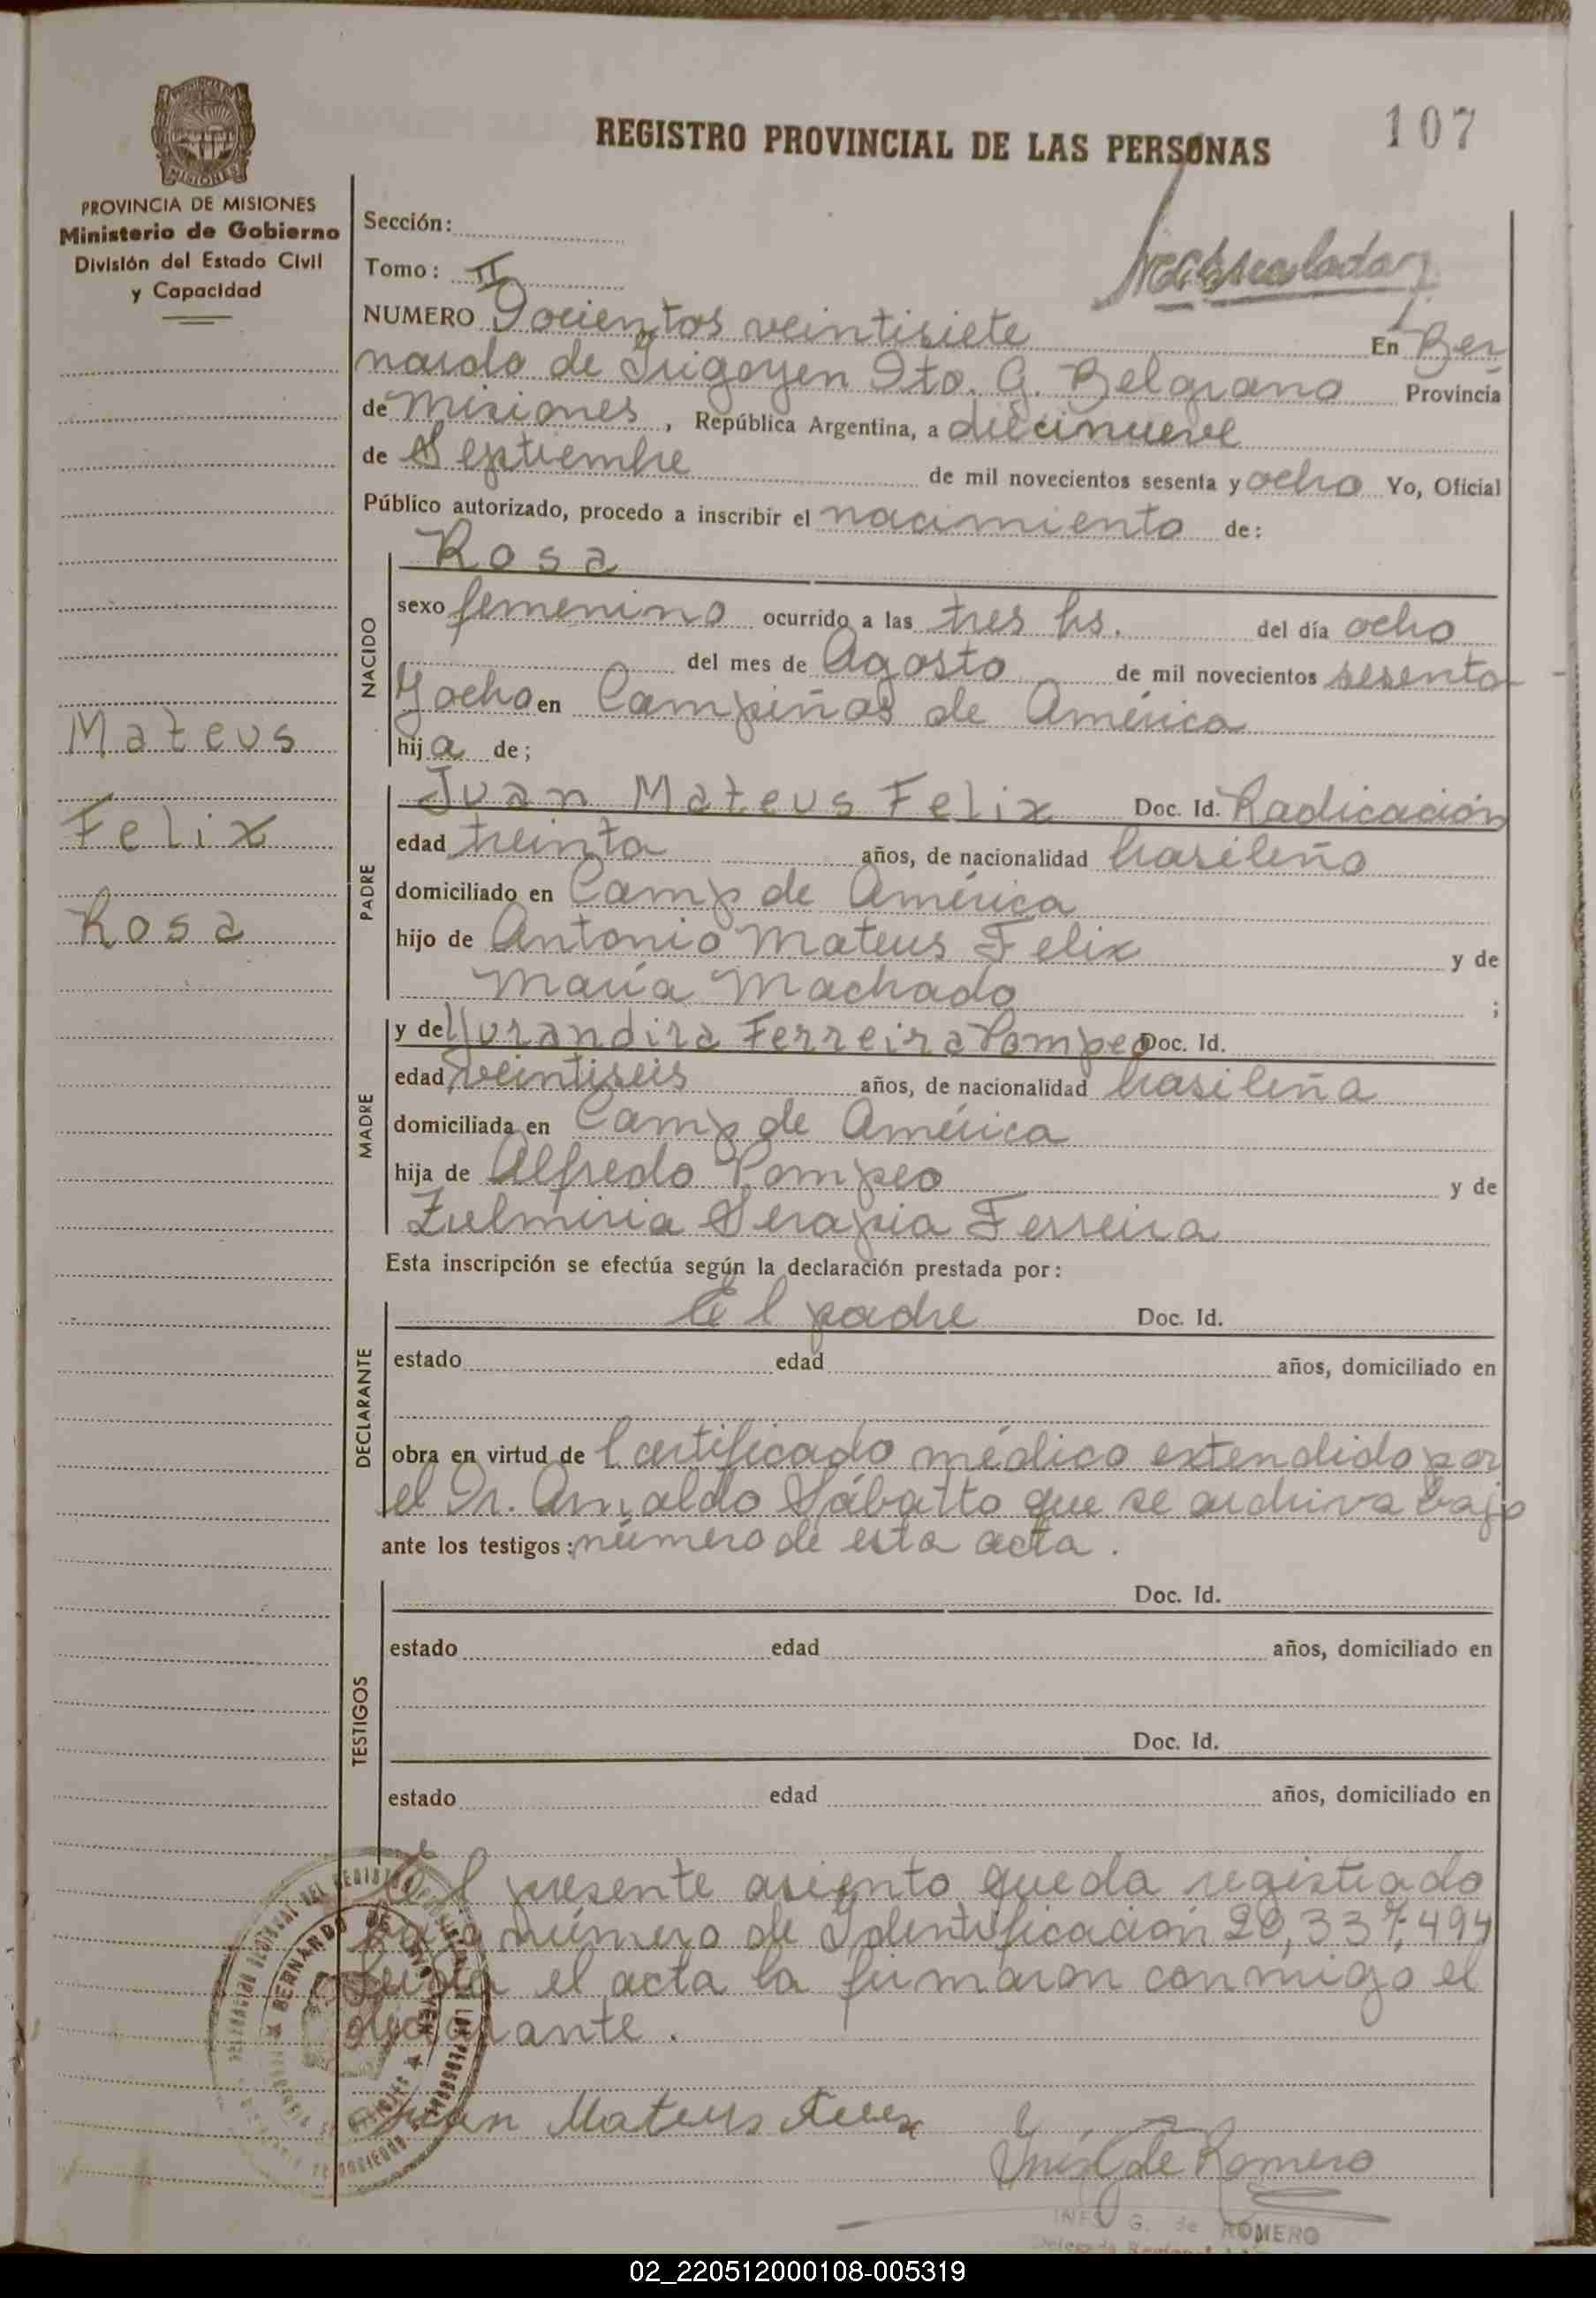 107
REGISTRO PROVINCIAL DE LAS PERSONAS
MISIONES
PROVINCIA DE MISIONES
Ministerio de Gobierno
División del Estado Civil
y Capacidad
Sección:
Tomo: II
NUMERO Docientos veintisiete En Ber
nardo de Irigoyen Dto. G. Belgrano Provincia
de Misiones, República Argentina, a diecinueve
de Septiembre de mil novecientos sesenta y ocho Yo, Oficial
Público autorizado, procedo a inscribir el nacimiento de:
NACIDO
Rosa
sexo femenino ocurrido a las tres hs. del día ocho
del mes de Agosto de mil novecientos sesenta
y ocho en Campiñas de América
hija de;
Mateus
Felix
Rosa
PADRE
Juan Mateus Felix Doc. Id. Radicación
edad treinta años, de nacionalidad brasileño
domiciliado en Camp de América
hijo de Antonio Mateus Felix y de
María Machado ;
MADRE
y de Yurandira Ferreira Pompeo Doc. Id.
edad veintiseis años, de nacionalidad brasileña
domiciliada en Camp de América
hija de Alfredo Pompeo y de
Zulmiria Serapia Ferreira
Esta inscripción se efectúa según la declaración prestada por:
DECLARANTE
El padre Doc. Id.
estado edad años, domiciliado en
obra en virtud de Certificado médico extendido por
el Dr. Arnaldo Sábatto que se archiva bajo
ante los testigos: número de esta acta.
TESTIGOS
Doc. Id.
estado edad años, domiciliado en
Doc. Id.
estado edad años, domiciliado en
El presente asiento queda registrado
bajo número de Identificación 20,337,494
Leida el acta la firmaron conmigo el
declarante.
BERNARDO DE IRIGOYEN
Juan Mateus Felix
Inés G de Romero
INES G. de ROMERO
02_220512000108-005319